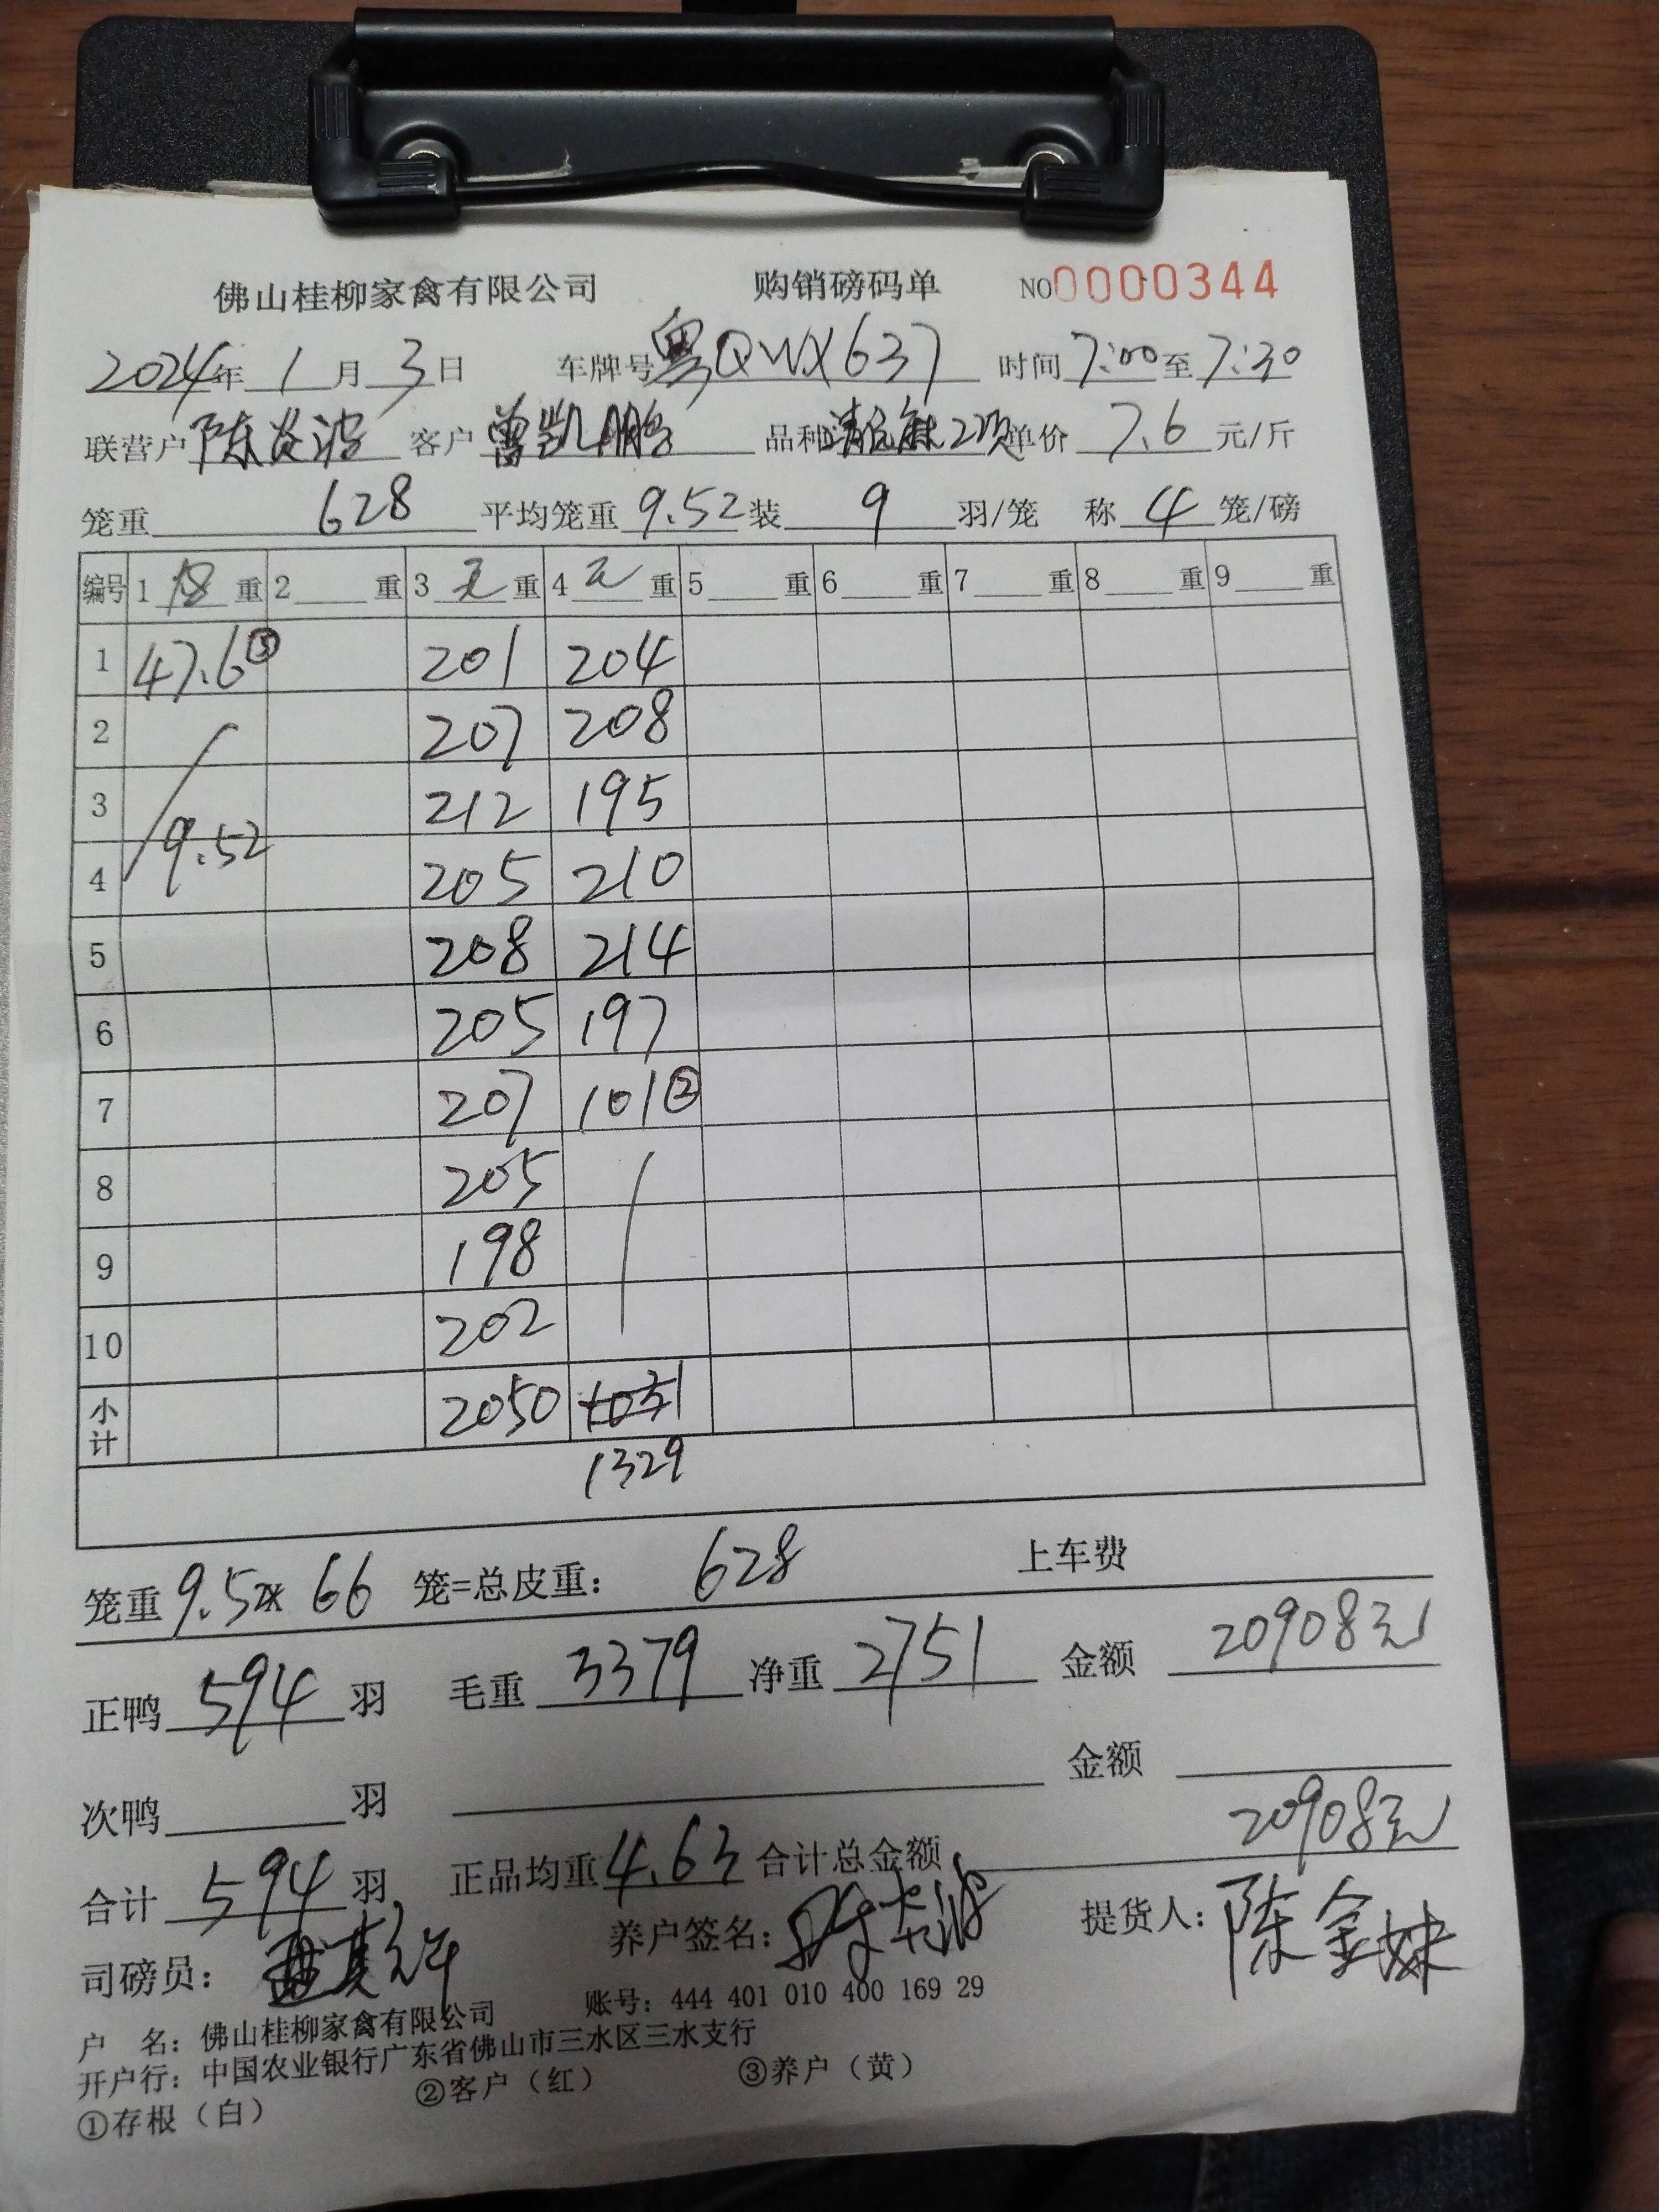 佛山桂柳家禽有限公司 购销磅码单 NO0000344
2024年1月3日 车牌号粤QWX637 时间7:00至7:30
联营户陈炎波 客户曾凯鹏 品种 单价7.6元/斤
笼重628平均笼重9.52装9羽/笼 称4笼/磅
编号 1 重 2 重 3 毛重 4 毛重 5 重 6 重 7 重 8 重 9 重
1 47.6⑤ 201 204
2 207 208
3 212 195
4 9.52 205 210
5 208 214
6 205 197
7 207 101②
8 205
9 198
10 202
小计 2050
1329
笼重9.52×66笼=总皮重：628 上车费
正鸭594羽 毛重3379净重2751 金额20908元
次鸭 羽 金额
合计594羽 正品均重4.63合计总金额20908元
司磅员： 养户签名： 提货人：陈金妹
户 名：佛山桂柳家禽有限公司 账号：444 401 010 400 169 29
开户行：中国农业银行广东省佛山市三水区三水支行
①存根（白） ②客户（红） ③养户（黄）